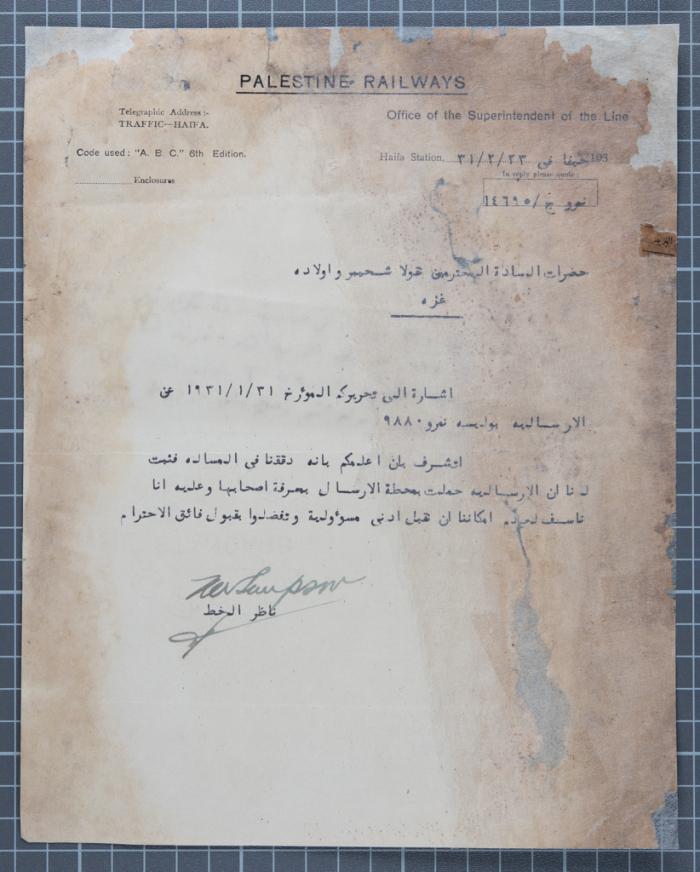 PALESTINE RAILWAYS
Telegraphic Address:-
TRAFFIC—HAIFA.
Office of the Superintendent of the Line
Code used: "A. B. C." 6th Edition.
Haifa Station, حيفا في ٣١/٢/٢٣ 193
Enclosures
In reply please quote:
نمرو خ/١٤٦٩٥
حضرات السادة المحترمين شحيبر واولاده
غزه
اشارة الى تحريركم المؤرخ ١٩٣١/١/٣١ عن
الارساليه بوليسه نمرو ٩٨٨٠
اتشرف بان اعلمكم بانه دققنا في المساله فثبت
لدنا ان الارساليه حملت بمحطة الارسال بمعرفة اصحابها وعليه انا
ناسف لعدم امكاننا ان نقبل ادنى مسؤولية وتفضلوا بقبول فائق الاحترام
ناظر الخط